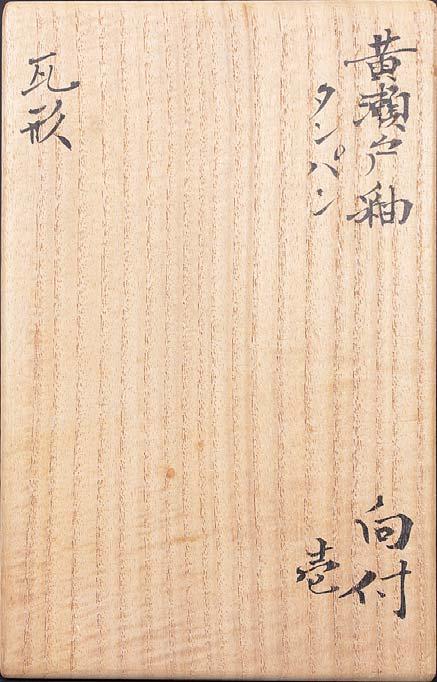 黄瀬戸釉
タンパン
向付
壱
瓦形